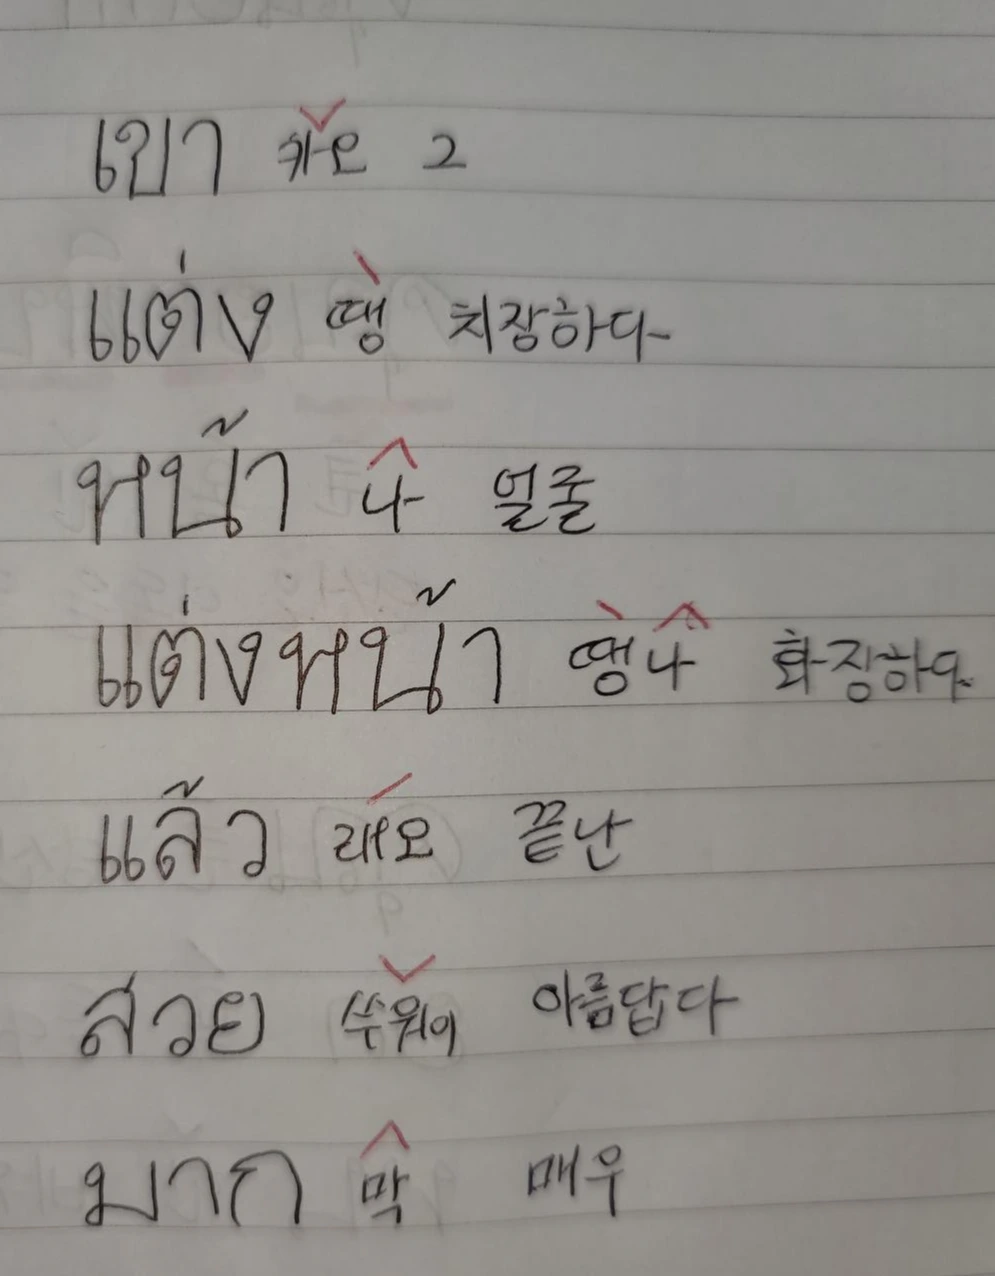 เขา 카오 그
แต่ง 땡 치장하다
หน้า 나 얼굴
แต่งหน้า 땡나 화장하다
แล้ว 래오 끝난
สวย 쑤워이 아름답다
มาก 막 매우